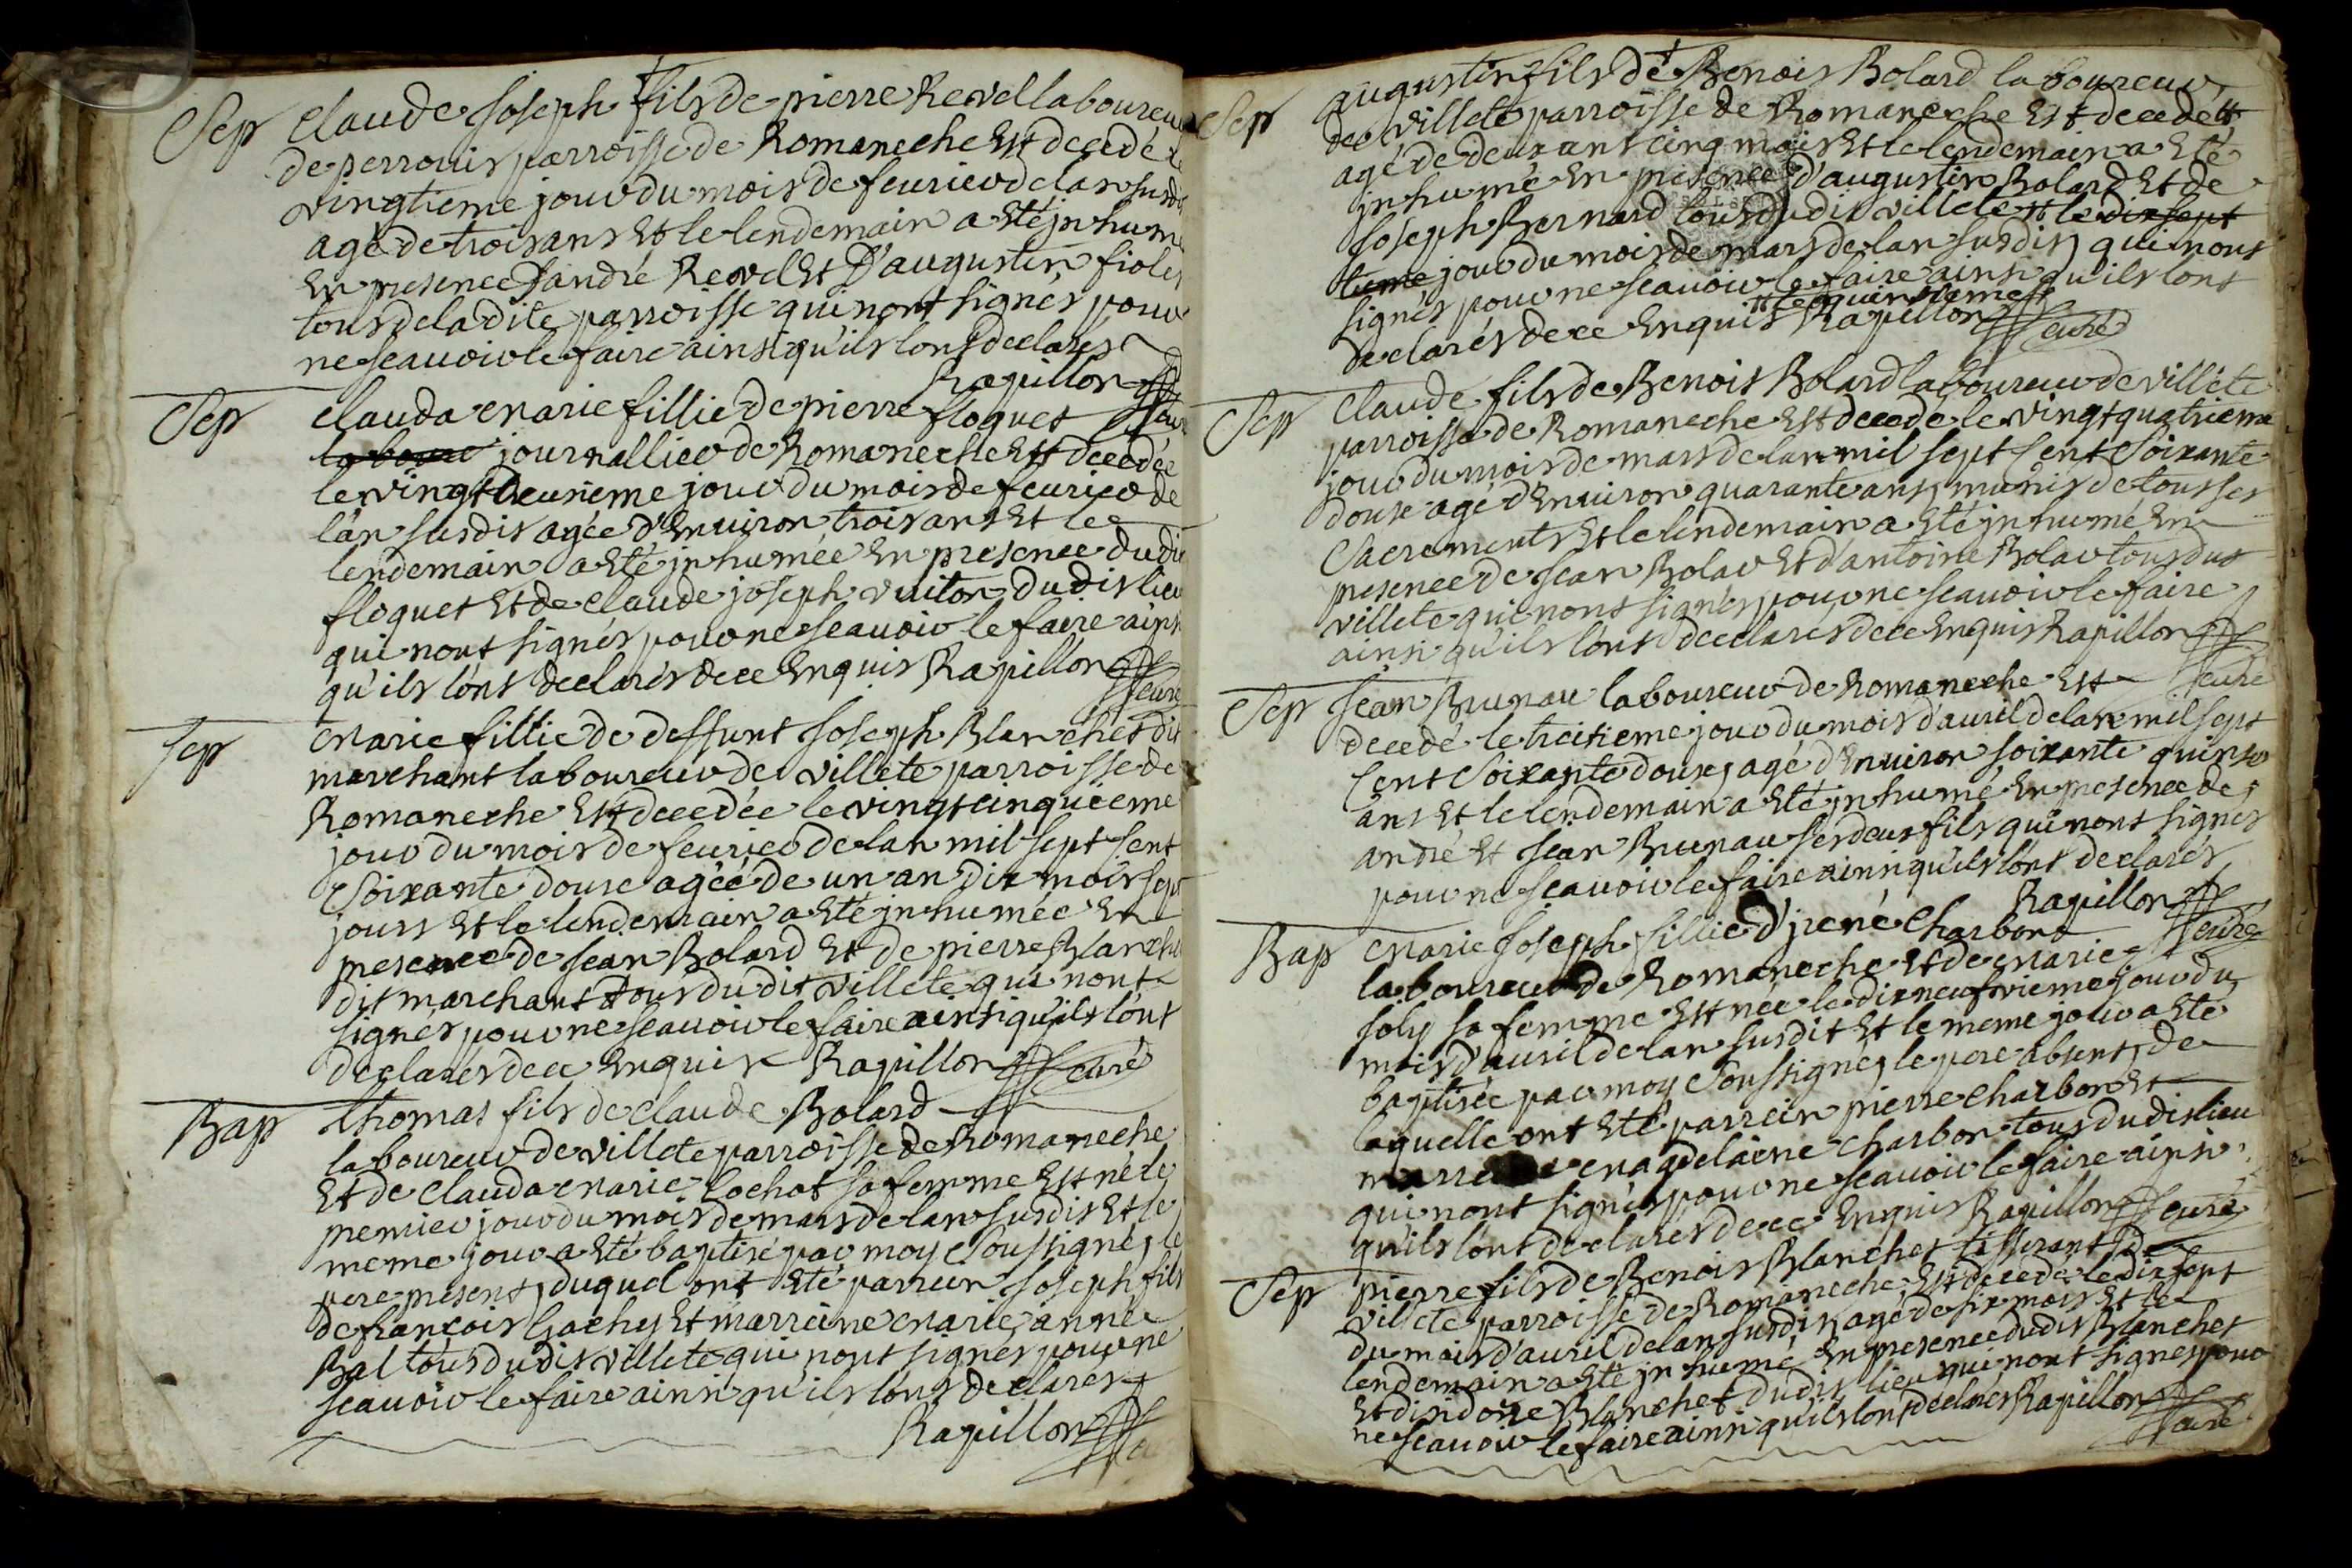 Sep Claude Joseph fils de pierre Revel laboureur
de perrouis parroisse de Romaneche Est decedé le
vingtieme jour du mois de feurier de lan susdit
agé de trois ans Et le lendemain a Eté jnhumé
En presence d'andré Revel Et D'augustin fioles
tous de la dite parroisse qui nont signés pour
ne seauoir le faire ainsi qu'ils lont declarés
Rapillon curé
Sep Clauda Marie fillie de pierre floquet
journallier de Romaneche Est decedée
le vingt deusieme jour du mois de feurier de
lan susdit agée d'Enuiron trois ans Et le
lendemain a Eté jnhumée En presence dudit
floquet Et de Claude joseph vuiton dudit lieu
qui nont signés pour ne seauoir le faire ainsi
qu'ils lont declarés de ce Enquis Rapillon curé
Sep Marie fillie de deffunt Joseph Blanchet dit
marchant laboureur de villete parroisse de
Romaneche Est decedée le vingt cinquieme
jour du mois de feurier de lan mil sept Cent
Soixante douse agéé de un an dix mois sept
jours Et le lendemain a Eté jnhumée En
presence de Jean Bolard Et de pierre Blanchet
dit marchant tous du dit villete qui nont
signés pour ne seauoir le faire ainsi qu'ils lont
declarés de ce Enquis Rapillon curé
Bap Thomas fils de Claude Bolard
laboureur de villete parroisse de Romaneche
Et de Clauda Marie Cochat sa femme Est né le
premier jour du mois de mars de lan susdit Et le
meme jour a Eté baptisé par moy Soussigné, le
pere present, duquel ont Eté parrein Joseph fils
de francois Gachy Et marreine Marie anne
Bal tous dudit villete qui nont signés pour ne
seauoir le faire ainsi qu'ils lont declarés
Rapillon
Sep augustin fils de Benois Bolard laboureur
de villete parroisse de Romaneche Est decedé #
agé de deux ans cinq mois Et le lendemain a Eté
jnhumé En presence d'augustin Bolard Et de
Joseph Bernard tous dudit villete # le dix sept
tieme jour du mois de mars de lan susdit, qui nont
signés pour ne seauoir le faire ainsi qu'ils lont
# le quinsieme
declarés de ce Enquis Rapillon curé
Sep Claude fils de Benois Bolard laboureur de villete
parroisse de Romaneche Est decedé le vingt quatrieme
jour du mois de mars de lan mil sept Cent Soixante
douse agé d'Enuiron quarante ans, munis de tous ses
Sacrements Et le lendemain a Eté jnhumé En
presence de Jean Bolar Et d'antoine Bolar tous dud
villete qui nont signés, pour ne seauoir le faire
ainsi qu'ils lont declarés de ce Enquis Rapillon curé
Sep Jean Brunau laboureur de Romaneche Est
decedé le treitieme jour du mois d'auril de lan mil sept
Cent Soixante douse, agé d'Enuiron soixante quinse
ans Et le lendemain a Eté jnhumé En presence de
andré Et Jean Brunau ses deux fils qui nont signés
pour ne seauoir le faire ainsi qu'ils lont declarés
Rapillon curé
Bap Marie Joseph fillie d'jrené Charbon
laboureur de Romaneche Et de Marie
Joly sa femme Est née le dix neufvieme jour du
mois d'auril de lan susdit Et le meme jour a Eté
baptisée par moy Soussigné, le pere absent, de
laquelle ont Eté parrein pierre Charbon Et
magdelaine Charbon tous dudit lieu
qui nont signés, pour ne seauoir le faire ainsi
qu'ils lont declarés de ce Enquis Rapillon curé
Sep pierre fils de Benois Blanchet tisserant de
villete parroisse de Romaneche, Est decedé le dix sept
du mois d'auril de lan susdit, agé de six mois Et le
lendemain a Eté jnhumé En presence dudit Blanchet
Et d'isidore Blanchet dudit lieu qui nont signés pour
ne seauoir le faire ainsi qu'ils lont declarés Rapillon curé